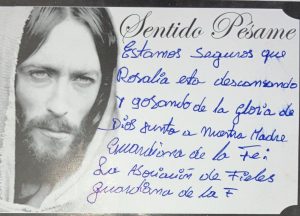 Sentido Pésame
Estamos seguros que
Rosalia esta descansando
y gosando de la Gloria de
Dios junto a Nuestra Madre
Guardiana de la Fe:
La Asociación de Fieles
Guardiana de la F